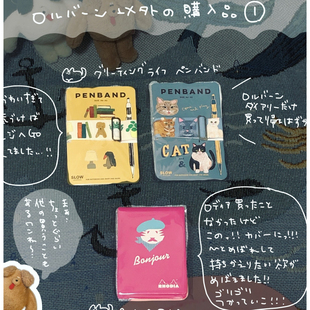 ロルバーン ルメタトの購入品①
グリーティングライフ ペンバンド
わいすぎて
づけば
ジへGo
てました…!!
PENBAND.
SLOW
PENBAND.
CAT
&
SLOW
ロルバーン
ダイアリーだけ
買って帰るはずが
まぁ、
ちょっとぐらい
他の買うことも
あるワンネ…?
Bonjour
RHODIA
ロディア買ったこと
なかったけど
この。!! カバーにっ!!!
一とめぼれして
持ちかえりたい欲が
めばえました!!
ゴリゴリ
つかっていこ!!!